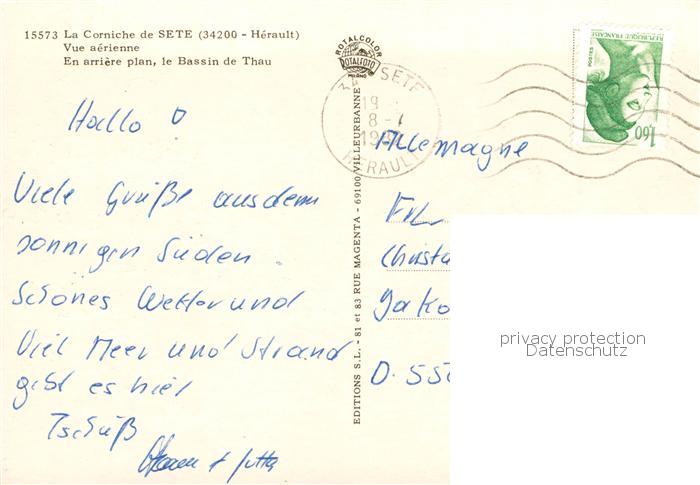 15573 La Corniche de SETE (34200 - Hérault)
Vue aérienne
En arrière plan, le Bassin de Thau
ROTALCOLOR
ROTALFOTO
MILANO
34 SETE
19
8 -
HERAULT
REPUBLIQUE FRANÇAISE
POSTES
1,60
Hallo !
Viele Grüße aus dem
sonnigen Süden.
Schönes Wetter und
Viel Meer und Strand
gibt es hier
Tschüß
+ Jutta
EDITIONS S.L. - 81 et 83 RUE MAGENTA - 69100 VILLEURBANNE
Allemagne
Frl.
Christa
Jako
D. 550
privacy protection
Datenschutz